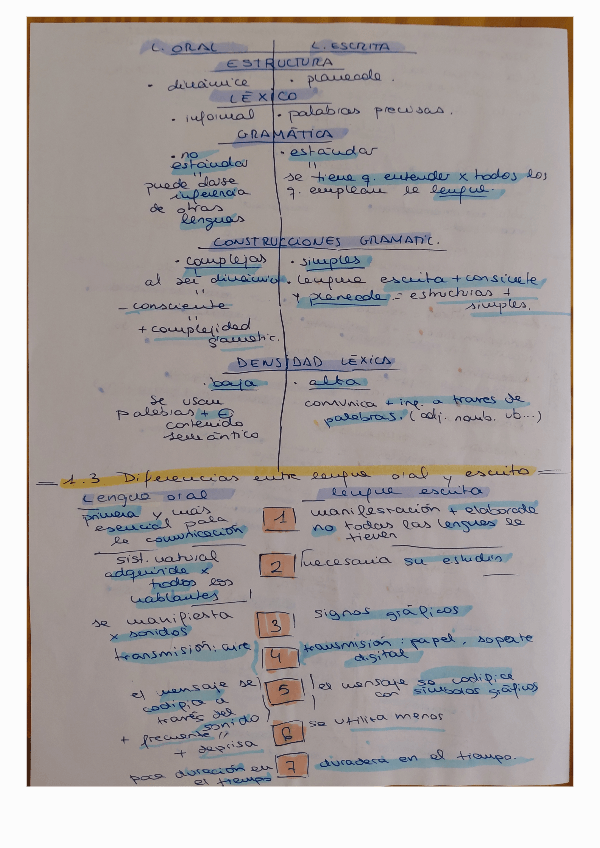 L. ORAL L. ESCRITA
ESTRUCTURA
· dinámica · planeada.
LÉXICO
· informal · palabras precisas.
GRAMÁTICA
· no estándar · estándar
puede darse inferencia de otras lenguas
se tiene q. entender x todos los
q. emplean la lengua.
CONSTRUCCIONES GRAMATIC.
· complejas · simples
al ser dinámico · lengua escrita + consciente
y planeada = estructuras +
simples.
- consciente
+ complejidad
gramatic.
DENSIDAD LÉXICA
· baja · alta
se usan
palabras +
contenido
semántico
comunica + inf. a través de
palabras. (adj. nomb. vb...)
1.3 Diferencias entre lengua oral y escrita
Lengua oral lengua escrita
primera y más
esencial para
la comunicación
1
manifestación + elaborada
no todas las lenguas la
tienen
sist. natural
adquirido x
todos los
hablantes
2
necesaria su estudio
se manifiesta
x sonidos
3
signos gráficos
transmisión: aire
4
transmisión: papel, soporte
digital
el mensaje se
codifica a
través del
sonido
5
el mensaje se codifica
con símbolos gráficos
+ frecuente
+ deprisa
6
se utiliza menos
poca duración en
el tiempo
7
duradera en el tiempo.